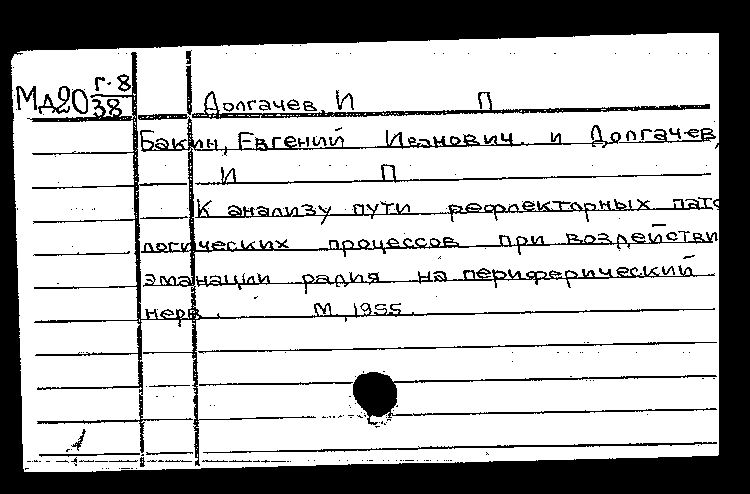 Мд20 г.8/38
Долгачев, И П
Бакин, Евгений Иванович и Долгачев,
И П
К анализу пути рефлекторных пато
логических процессов при воздействи
эманации радия на периферический
нерв. М., 1955.
1